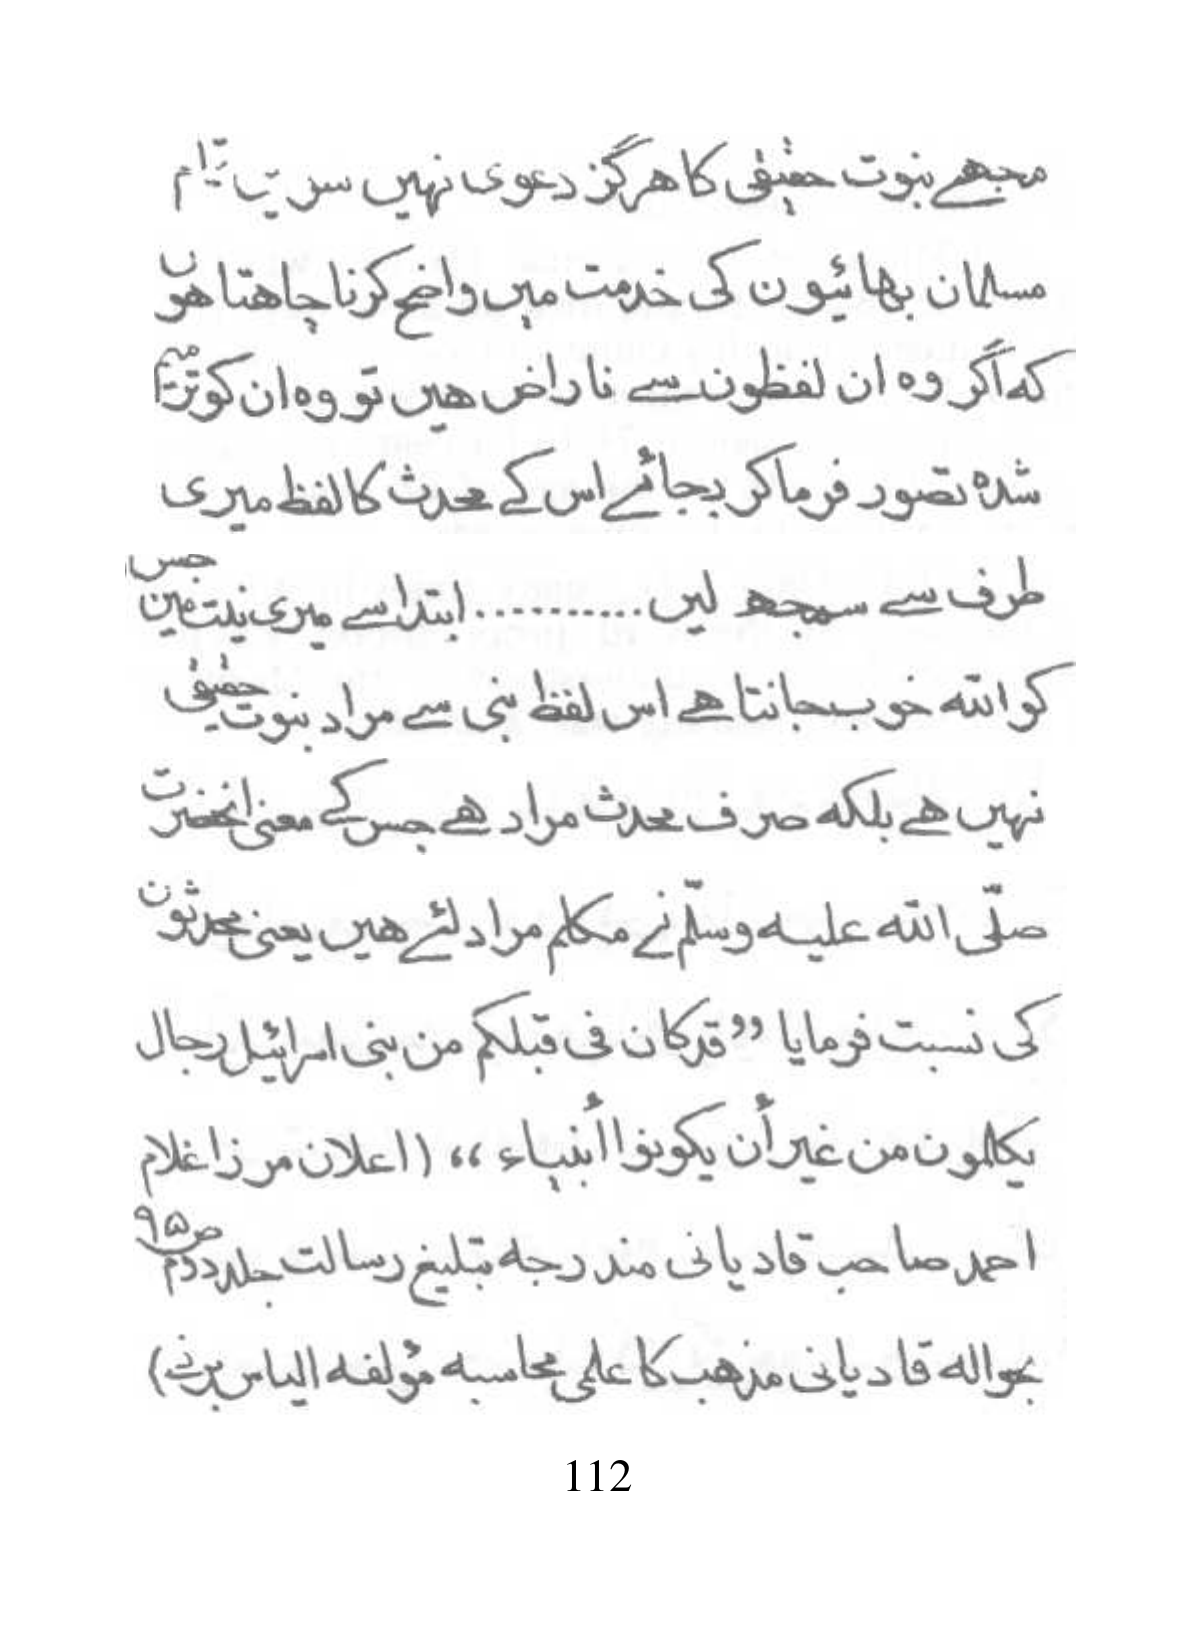 مجھے نبوت حقیقی کا ھرگز دعوی نہیں سو میں تمام
مسلمان بھائیون کی خدمت میں واضح کرنا چاھتا ھوں
کہ اگر وہ ان لفظون سے ناراض ھیں تو وہ ان کو ترمیم
شدہ تصور فرماکر بجائے اس کے محدث کا لفظ میری
طرف سے سمجھ لیں .......... ابتدا سے میری نیت مین جس
کو اللہ خوب جانتا ہے اس لفظ نبی سے مراد نبوت حقیقی
نہیں ھے بلکہ صرف محدث مراد ھے جس کے معنی انحضرت
صلّی اللہ علیہ وسلّم نے مکلم مراد لئے ھیں یعنی محدثون
کی نسبت فرمایا ’’قد کان فی قبلکم من بنی اسرائیل رجال
یکلمون من غیر أن یکونوا أنبیاء ،، (اعلان مرزا غلام
احمد صاحب قادیانی مندرجہ تبلیغ رسالت جلد دوم ص ۹۵
بحوالہ قادیانی مذھب کا علمی محاسبہ مؤلفہ الیاس برنی)
112